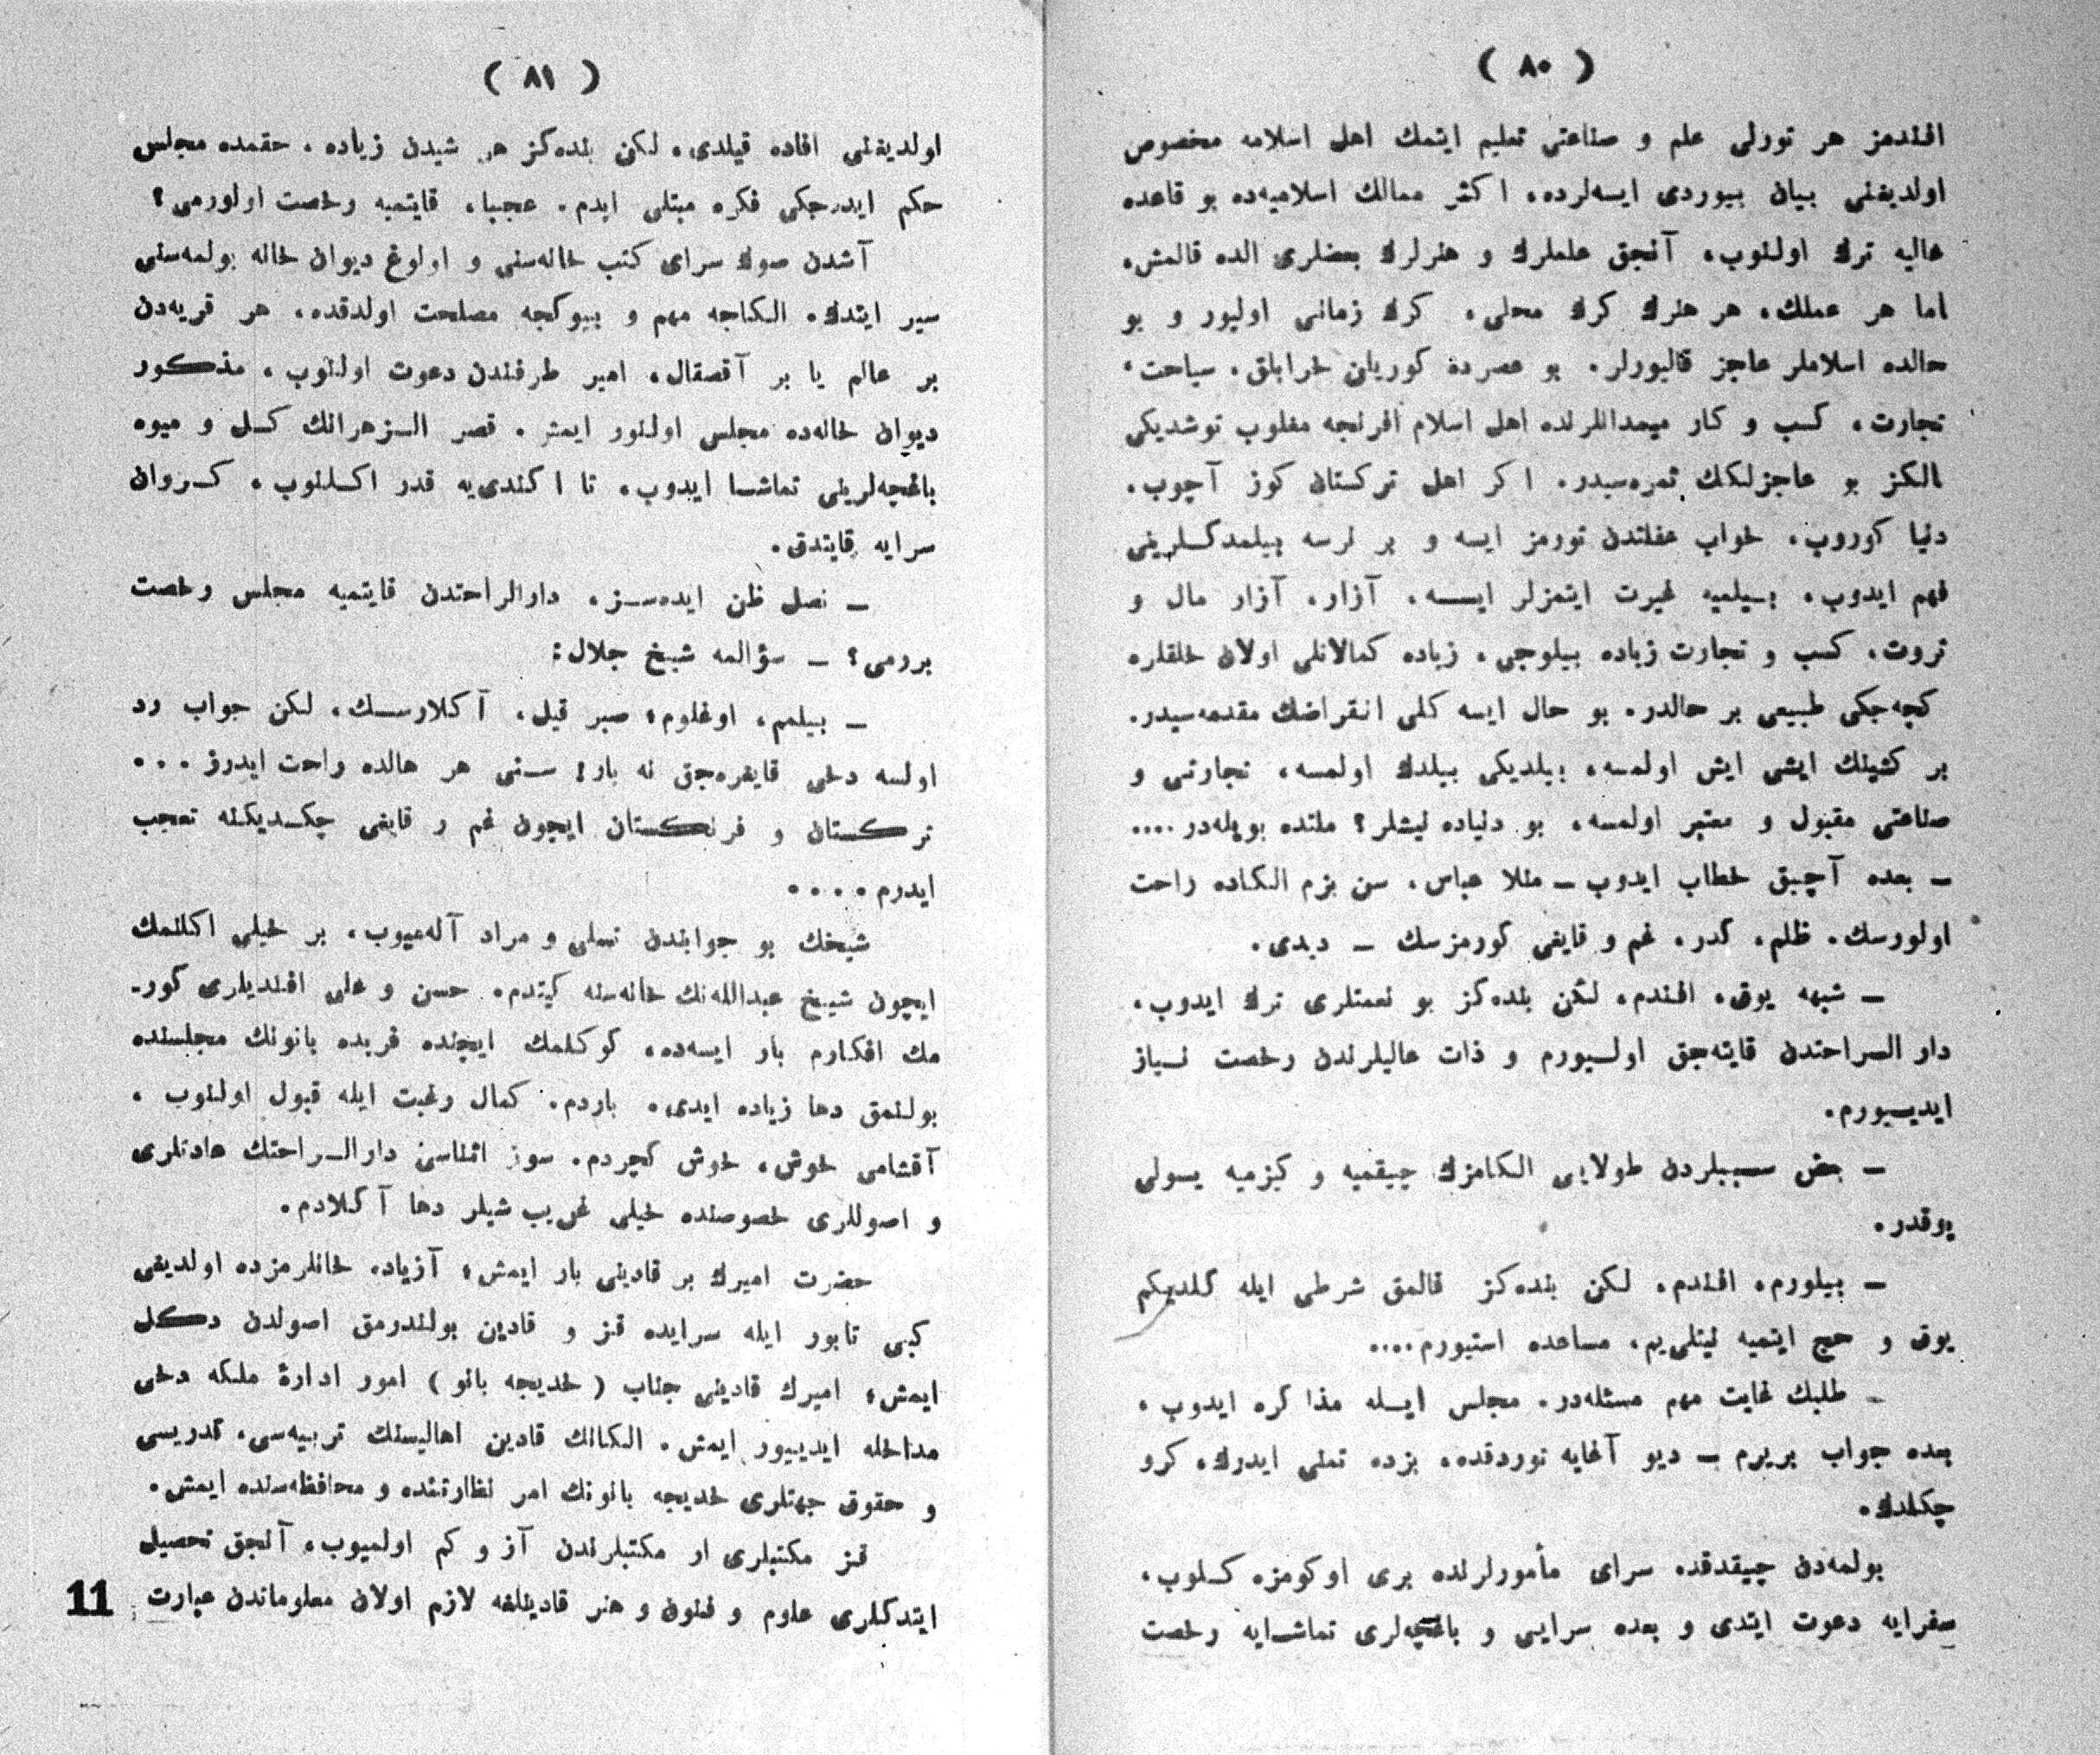 ( ٨٠ )
افندمز هر تورلى علم و صناعتى تعليم ايتمك اهل اسلامه مخصوص
اولديغنى بيان بيوردى ايسه‌لرده، اكثر ممالك اسلاميه‌ده بو قاعده
عاليه ترك اولنوب، آنجق علملرك و هنرلرك بعضلرى الده قالمش،
اما هر عملك، هر هنرك كرك محلى، كرك زمانى اوليور و بو
حالده اسلاملر عاجز قاليورلر. بو عصرده كوريلن خرابلق، سياحت،
تجارت، كسب و كار ميدانلرنده اهل اسلام افرنجه مغلوب توشديكى
الكز بو عاجزلكك ثمره‌سيدر. اكر اهل تركستان كوز آچوب،
دنيا كوروب، خواب غفلتدن تورمز ايسه و بر نرسه بيلمدكلرينى
فهم ايدوب، بيلميه غيرت ايتمزلر ايسه، آزار، آزار مال و
ثروت، كسب و تجارت زياده بيلوجى، زياده كمالاتلى اولان خلقلره
كچه‌جكى طبيعى بر حالدر. بو حال ايسه كلى انقراضك مقدمه‌سيدر.
بر كشينك ايشى ايش اولمسه، بيلديكى بيلدك اولمسه، تجارتى و
صناعتى مقبول و معتبر اولمسه، بو دنياده نيشلر؟ ملتده بويله‌در....
ــ بعده آچيق خطاب ايدوب ــ ملا عباس، سن بزم الكاده راحت
اولورسك. ظلم، كدر، غم و قايغى كورمزسك ــ ديدى.
ــ شبهه يوق، افندم، لكن بنده‌كز بو نعمتلرى ترك ايدوب،
دار الراحتدن قايته‌جق اوليورم و ذات عاليلرندن رخصت نياز
ايديورم.
ــ بعض سببلردن طولايى الكامزك چيقميه و كيزميه يولى
يوقدر.
ــ بيلورم، افندم، لكن بنده‌كز قالمق شرطى ايله كلديكم
يوق و حج ايتميه نيتلى‌يم، مساعده استيورم....
ــ طلبك غايت مهم مسئله‌در. مجلس ايله مذاكره ايدوب،
بعده جواب بريرم ــ ديو آغايه توردقده، بزده تمنى ايدرك، كرو
چكلدك.
بولمه‌دن چيقدقده سراى مأمورلرنده برى اوكومزه كلوب،
صفرايه دعوت ايتدى و بعده سرايى و باغچه‌لرى تماشايه رخصت
( ٨١ )
اولديغنى افاده قيلدى، لكن بنده‌كز هر شيدن زياده، حقمده مجلس
حكم ايده‌جكى فكره مبتلى ايدم. عجبا، قايتميه رخصت اولورمى؟
آشدن صوك سراى كتب خانه‌سنى و اولوغ ديوان خانه بولمه‌سنى
سير ايتدك. الكاجه مهم و بيوكجه مصلحت اولدقده، هر قريه‌دن
بر عالم يا بر آقصقال، امير طرفندن دعوت اولنوب، مذكور
ديوان خانه‌ده مجلس اولنور ايمش. قصر الزهرانك كل و ميوه
باغچه‌لرينى تماشا ايدوب، تا اكندى‌يه قدر اكلنوب، كروان
سرايه قايتدق.
ــ نصل ظن ايده‌سز، دارالراحتدن قايتميه مجلس رخصت
بررمى؟ ــ سؤالمه شيخ جلال:
ــ بيلمم، اوغلوم؛ صبر قيل، آكلارسك، لكن جواب رد
اولسه دخى قايغره‌جق نه بار! سنى هر حالده راحت ايدرز...
تركستان و فرنكستان ايچون غم و قايغى چكديكنه تعجب
ايدرم....
شيخك بو جوابندن تسلى و مراد آله‌ميوب، بر خيلى اكلنمك
ايچون شيخ عبدالله‌نك خانه‌سنه كيتدم. حسن و على افنديلرى كور-
مك افكارم بار ايسه‌ده، كوكلمك ايچنده فريده بانونك مجلسنده
بولنمق دها زياده ايدى. باردم. كمال رغبت ايله قبول اولنوب،
آقشامى خوش، خوش كچردم. سوز اثناسى دارالراحتك عادتلرى
و اصوللرى خصوصنده خيلى غريب شيلر دها آكلادم.
حضرت اميرك بر قادينى بار ايمش؛ آزياده خانلرمزده اولديغى
كبى تابور ايله سرايده قز و قادين بولندرمق اصولدن دكل
ايمش؛ اميرك قادينى جناب (خديجه بانو) امور ادارهٔ ملكه دخى
مداخله ايدييور ايمش. الكانك قادين اهاليسنك تربيه‌سى، تدريسى
و حقوق جهتلرى خديجه بانونك امر نظارتنده و محافظه‌سنده ايمش.
قز مكتبلرى ار مكتبلرندن آز و كم اولميوب، آنجق تحصيل
ايتدكلرى علوم و فنون و هنر قادينلغه لازم اولان معلوماتدن عبارت
11